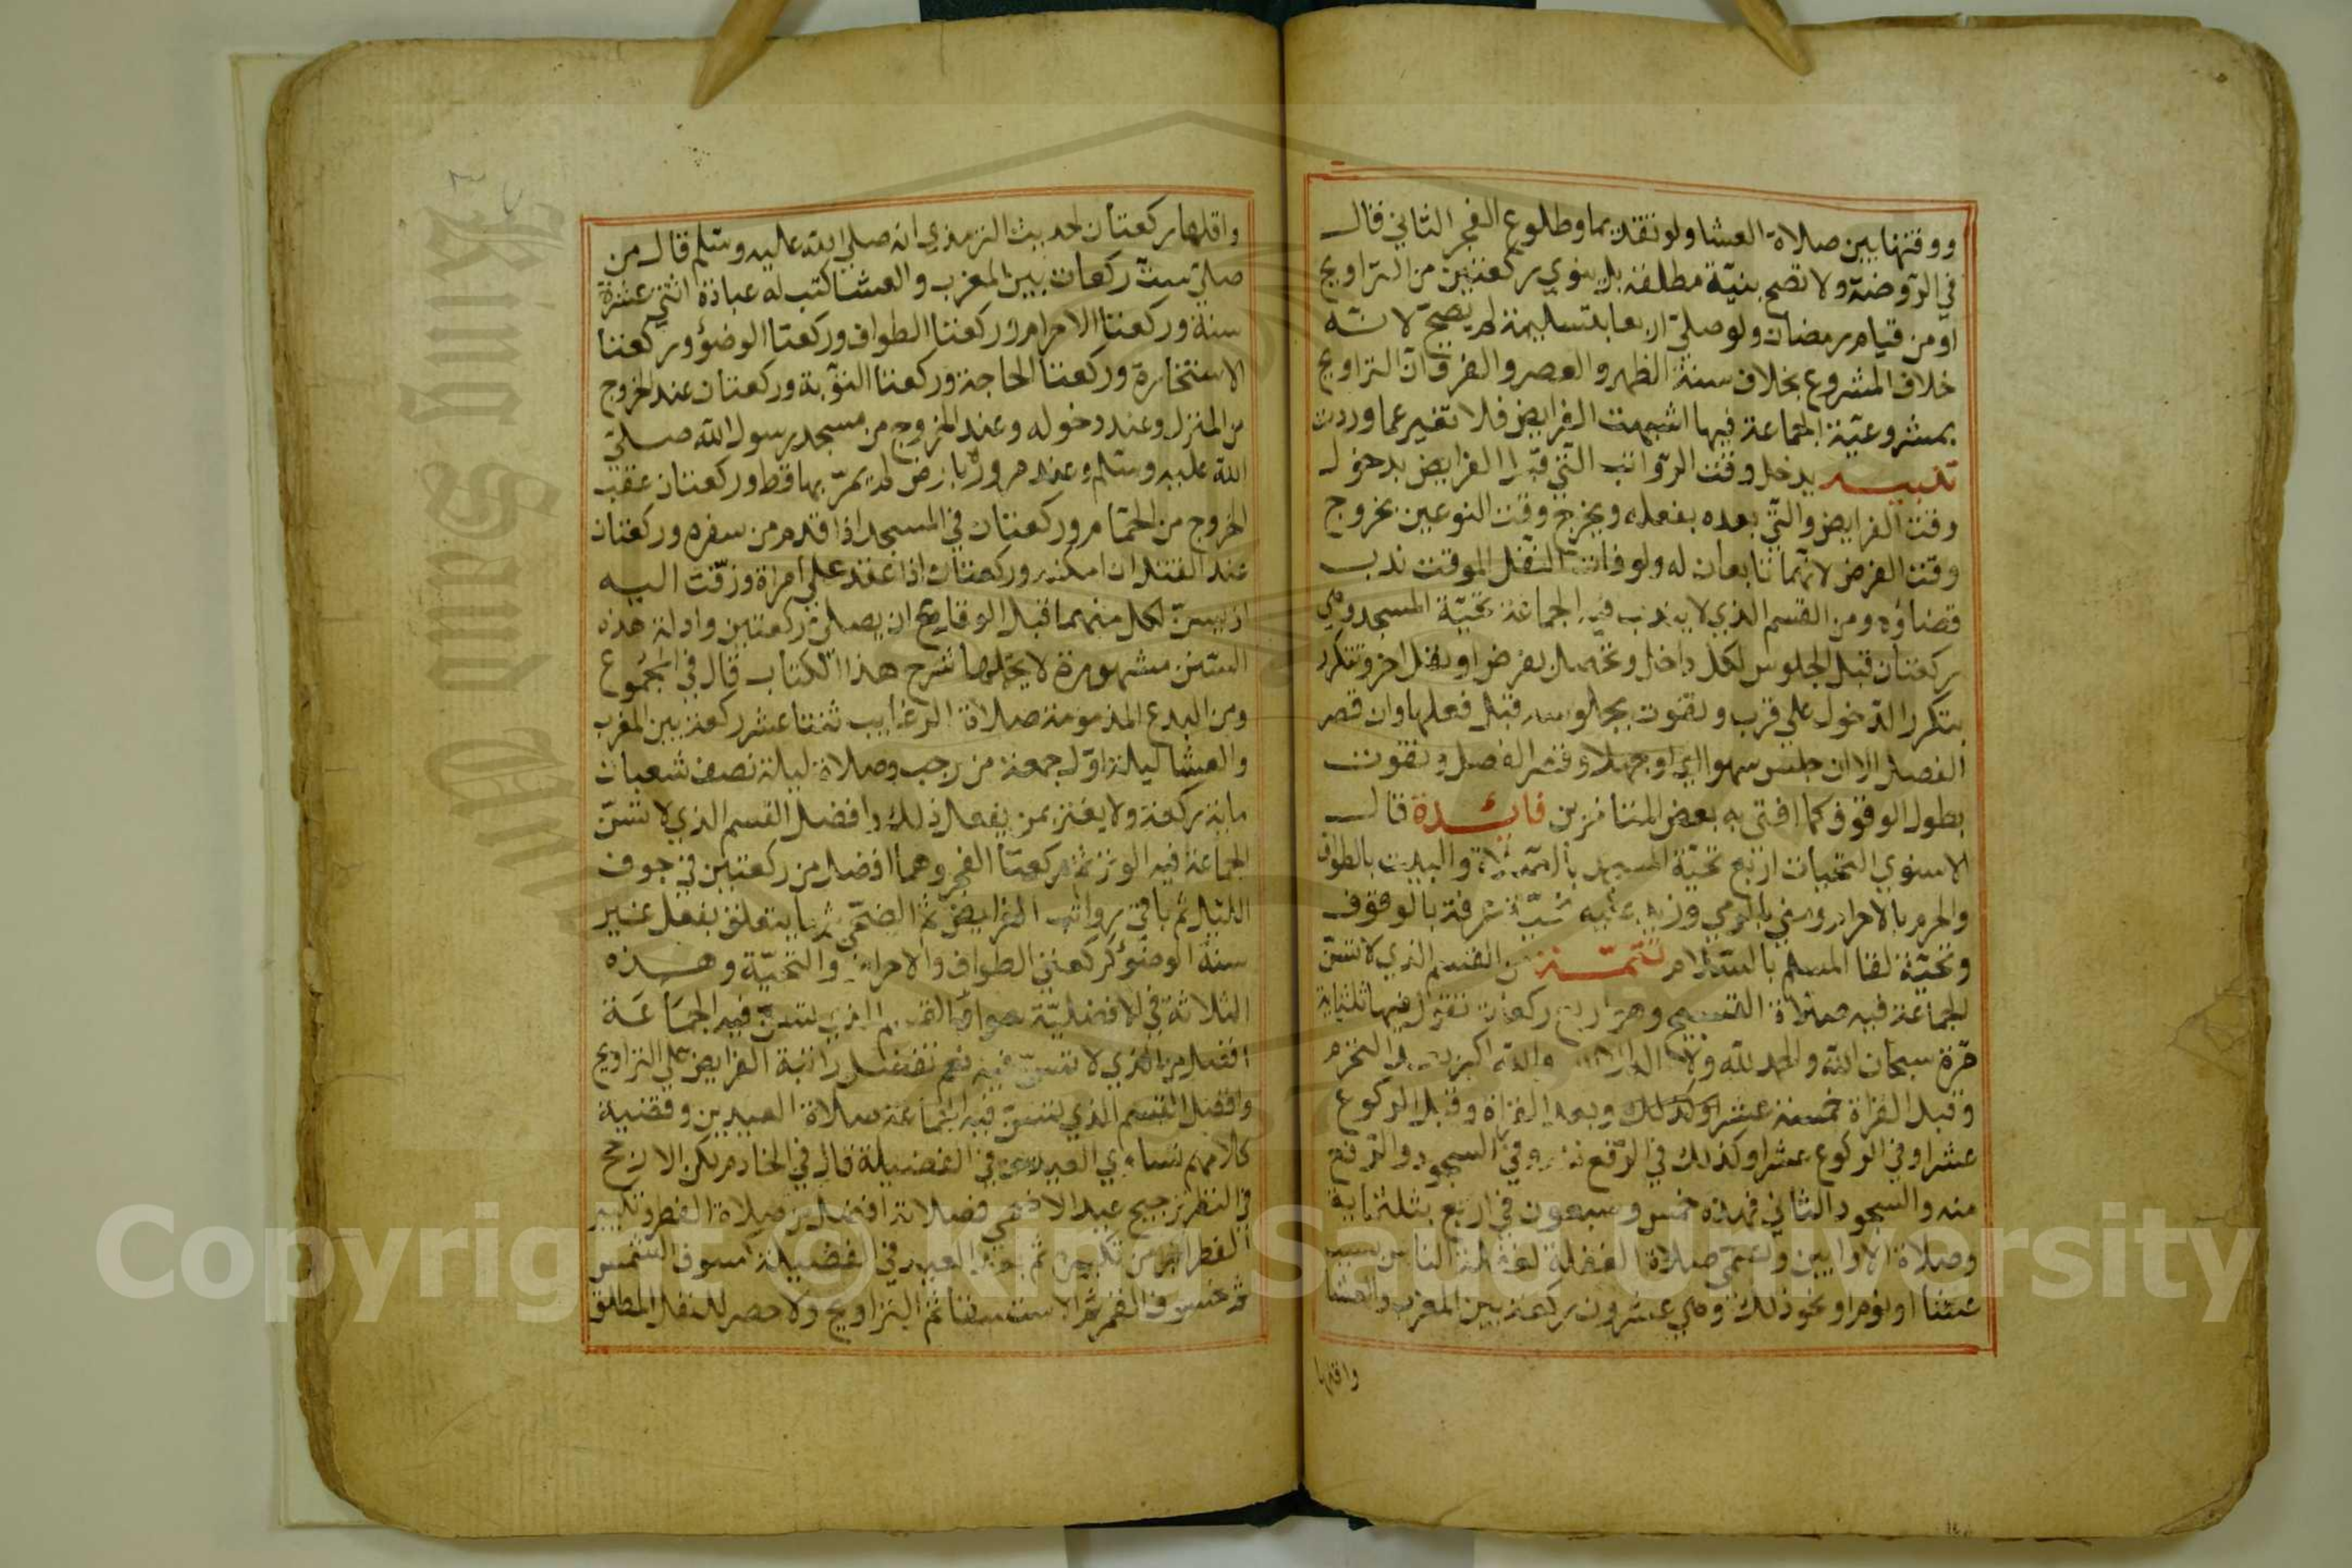 ووقتها بين صلاة العشا ولو تقديما وطلوع الفجر الثاني قال
في الروضة ولا تصح بنية مطلقة بل ينوي ركعتين من التراويح
او من قيام رمضان ولو صلى اربعا بتسليمة لم يصح لانه
خلاف المشروع بخلاف سنة الظهر والعصر والفرق ان التراويح
بمشروعية الجماعة فيها اشبهت الفرايض فلا تغير عما وردت
تنبيه يدخل وقت الرواتب التي قبل الفرايض بدخول
وقت الفرايض والتي بعده بفعله ويخرج وقت النوعين بخروج
وقت الفرض لانهما تابعان له ولو فات النفل الموقت ندب
قضاؤه ومن القسم الذي لا يندب فيه الجماعة تحية المسجد وهي
ركعتان قبل الجلوس لكل داخل وتحصل بفرض او نفل اخر وتتكرر
بتكرر الدخول على قرب وتفوت بجلوسه قبل فعلها وان قصر
الفصل الا ان جلس سهوا او جهلا وقصر الفصل وتفوت
بطول الوقوف كما افتى به بعض المتاخرين فايدة قال
الاسنوي التحيات اربع تحية المسجد بالصلاة والبيت بالطواف
والحرم بالاحرام ومنى بالرمي وزيد عليه تحية عرفة بالوقوف
وتحية لقا المسلم بالسلام تتمة من القسم الذي لا تسن
الجماعة فيه صلاة التسبيح وهي اربع ركعات تقول فيها ثلثماية
مرة سبحان الله والحمد لله ولا اله الا الله والله اكبر بعد التحرم
وقبل القراة خمسة عشر وكذلك وبعد القراة وقبل الركوع
عشرا وفي الركوع عشرا وكذلك في الرفع منه وفي السجود والرفع
منه والسجود الثاني فهذه خمس وسبعون في اربع بثلثماية
وصلاة الاوابين وتسمى صلاة الغفلة لغفلة الناس بسبب
عشا او نوم او نحو ذلك وهي عشرون ركعة بين المغرب والعشا
واقلها
واقلها ركعتان لحديث الترمذي انه صلى الله عليه وسلم قال من
صلى ست ركعات بين المغرب والعشا كتب له عبادة اثنتي عشرة
سنة وركعتا الاحرام وركعتا الطواف وركعتا الوضؤ وركعتا
الاستخارة وركعتا الحاجة وركعتا التوبة وركعتان عند الخروج
من المنزل وعند دخوله وعند الخروج من مسجد رسول الله صلى
الله عليه وسلم وعند مروره بارض لم يمر بها قط وركعتان عقب
الخروج من الحمام وركعتان في المسجد اذا قدم من سفره وركعتان
عند القتل ان امكنه وركعتان اذا عقد على امراة وزفت اليه
اذ يسن لكل منهما قبل الوقاع ان يصلى ركعتين وادلة هذه
السنن مشهورة لا يحتملها شرح هذا الكتاب قال في المجموع
ومن البدع المذمومة صلاة الرغايب ثنتا عشر ركعة بين المغرب
والعشا ليلة اول جمعة من رجب وصلاة ليلة نصف شعبان
ماية ركعة ولا يغتر بمن يفعل ذلك وافضل القسم الذي لا تسن
الجماعة فيه الوتر ثم ركعتا الفجر وهما افضل من ركعتين في جوف
الليل ثم باقي رواتب الفرايض ثم الضحى ثم ما يتعلق بفعل غير
سنة الوضوء كركعتي الطواف والاحرام والتحية وهذه
الثلاثة في الافضلية سوا والقسم الذي تسن فيه الجماعة
افضل من الذي لا تسن فيه نعم تفضل راتبة الفرايض على التراويح
وافضل القسم الذي تسن فيه الجماعة صلاة العيدين وقضية
كلامهم تساوي العيدين في الفضيلة قال في الخادم لكن الارجح
في النظر ترجيح عيد الاضحى فصلاته افضل من صلاة الفطر وتكبير
الفطر افضل من تكبيره ثم بعد العيد في الفضيلة كسوف الشمس
ثم خسوف القمر ثم الاستسقا ثم التراويح ولا حصر للنفل المطلق
Copyright © King Saud University